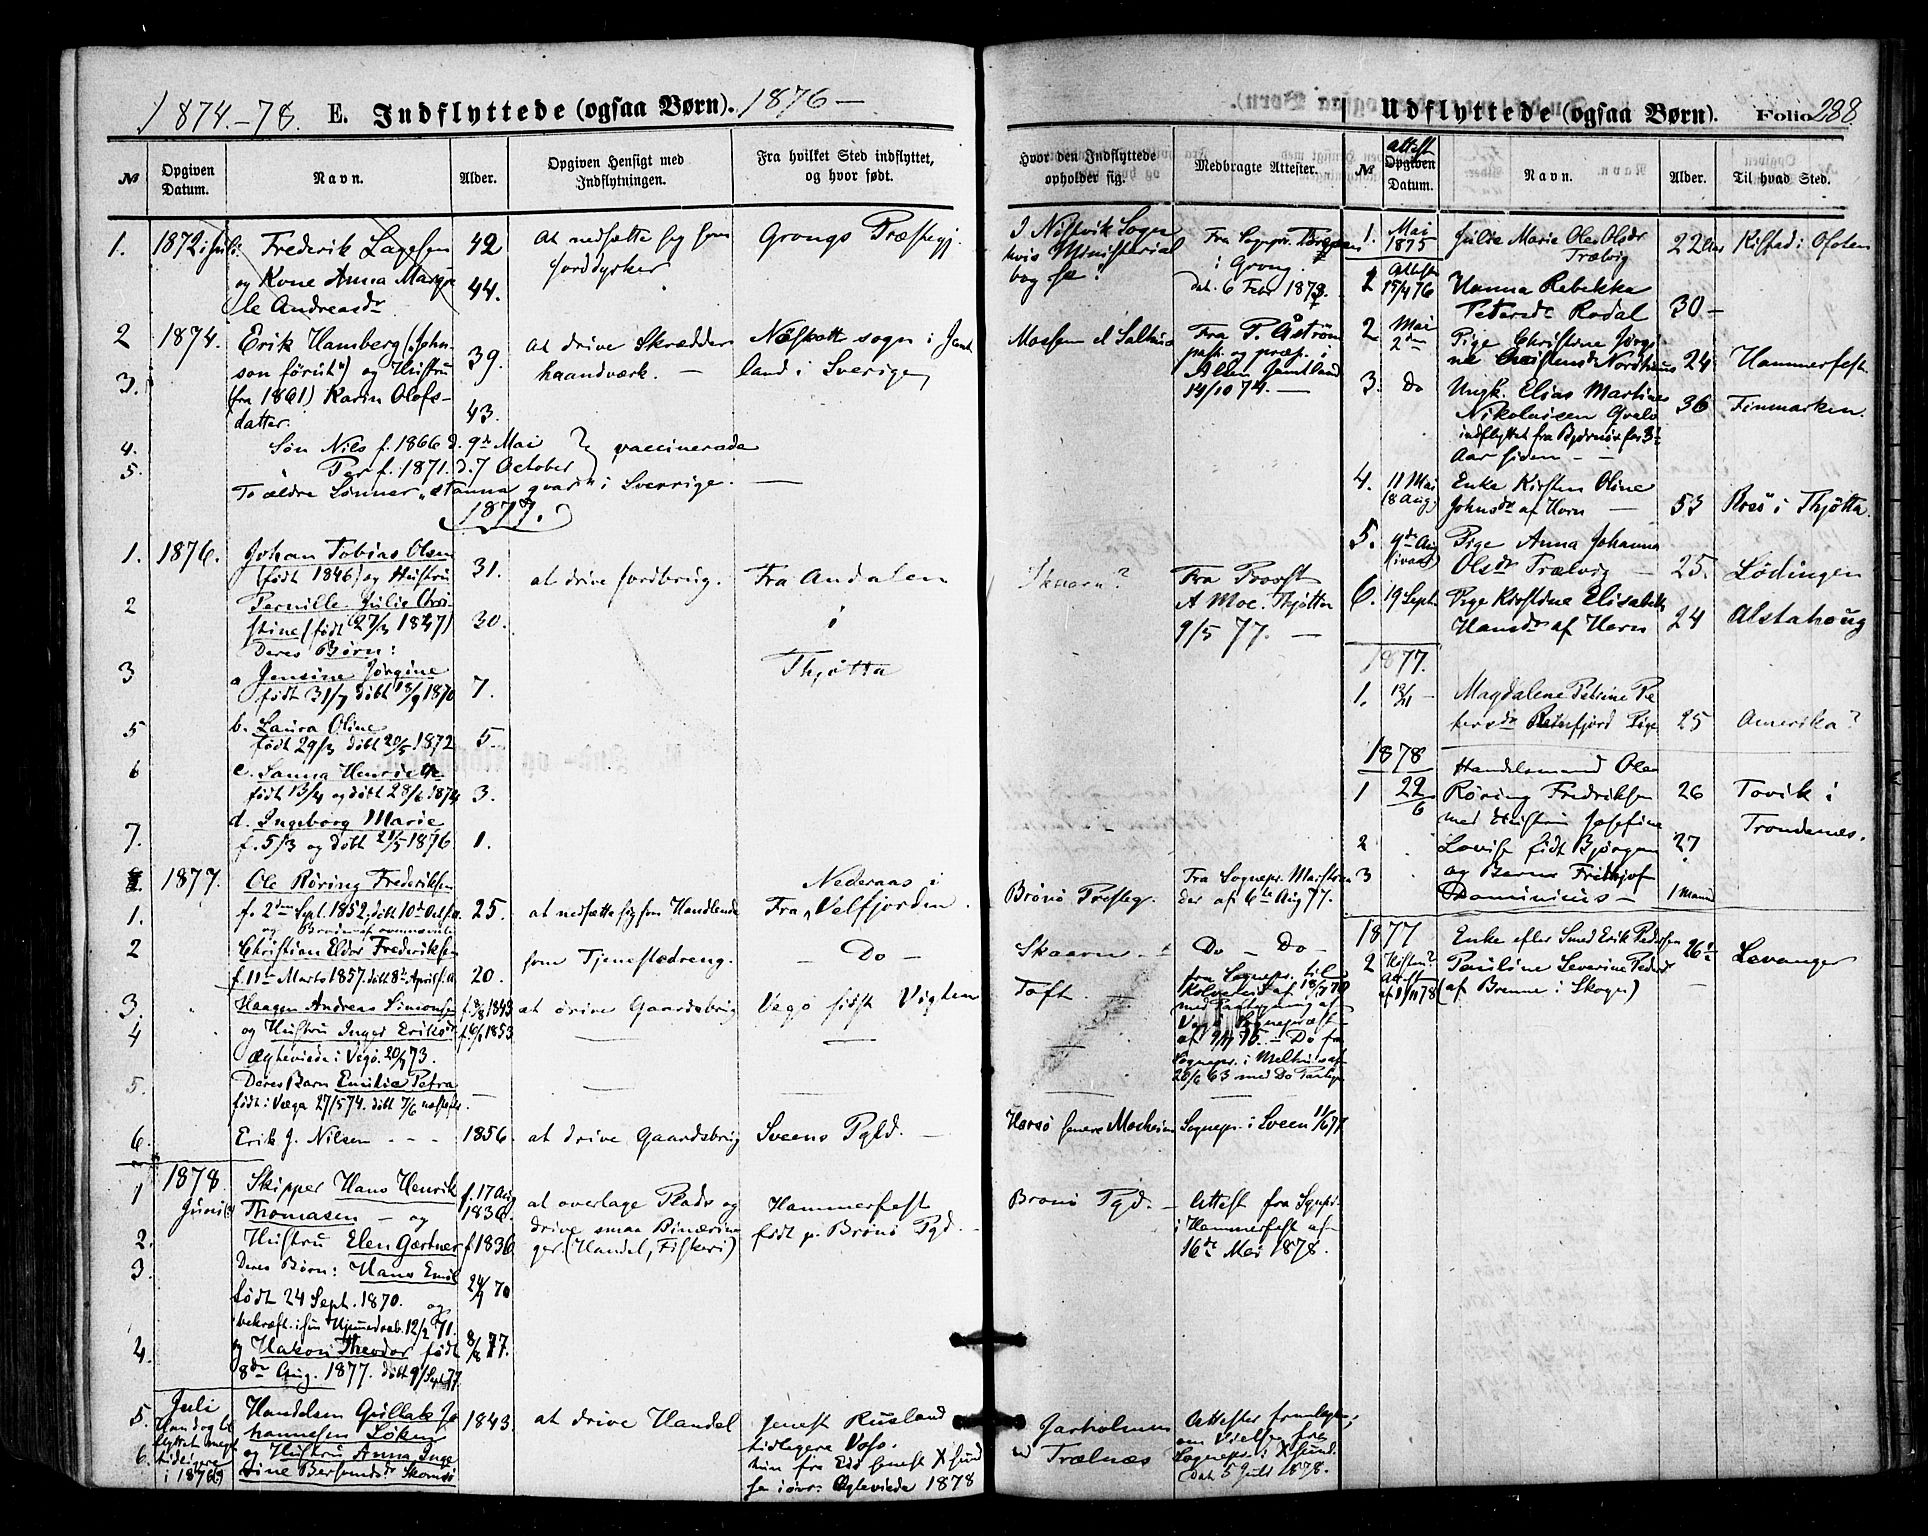 1874.-78. E. Indflyttede (ogsaa Børn). 1876 —
№
Opgiven Datum.
Navn.
Alder.
Opgiven Hensigt med Indflytningen.
Fra hvilket Sted indflyttet, og hvor født.
1. 1872 i Juli. Frederik Lagesen 42 at nedsætte sig som Grongs Præstegj.
og Kone Anna Margre 44. Jorddyrker
te Andreasdr
2 1874. Erik Hamberg („John- 39. at drive Skrædder Näskott sogn i Jemt
3. son förut") og Hustru haandværk. — land i Sverige
(fra 1861) Karin Olofs- 43.
datter
4. Søn Nils f. 1866 d. 9de Mai vaccinerade
5. " Per f. 1871. d. 7 October
To ældre Sønner „stanna qvar" i Sverrige. —
1877.
1. 1876. Johan Tobias Olsen 31. at drive Jordbrug. Fra Andalen
(født 1846) og Hustru
2 Pernille Julie Chri- 30. i
stine (født 27/3 1847)
Deres Børn:
3 a Jensine Jørgine 7. Thjøtta
født 31/7 døbt 18/9 1870
5 b. Laura Oline 5.
født 29/3 døbt 20/5 1872
6 c. Sanna Henriette 3.
født 13/4 og døbt 28/6 1874
7. d. Ingeborg Marie 1.
f. 5/3 og døbt 21/5 1876
1877. Ole Røring Frederiksen Nederaas i
1. f. 2den Sept. 1852. døbt 10de Oct s.a. 25. at nedsætte sig som Handlende Fra Velfjorden.
og Broder af ovennævnte
2 Christian Eldor Frederiksen
f. 11te Marts 1857. døbt 8de April s.a. 20. som Tjenestedreng. — Do —
3. Haagen Andreas Simonsen f. 18/8 1843 at drive Gaardsbrug Vegø født Vigten
4 og Hustru Inger Eriksdr f. 6/1 1853
ægteviede i Vegø. 20/7 73.
5. Deres Barn Emilie Petra —
født i Vega 27/5 74. døbt 7/6
6. Erik J. Nilsen - - - 1856. at drive Gaardsbrug Sveens Pgld. —
1878.
1 Skipper Hans Henrik f. 17 Aug at overtage Plads og Hammerfest
Juni Thomasen — og 1836. drive smaa Binærin
2. Hustru Elen Gærtner f. 1836 ger. (Handel, Fiskeri) født p. Brønø Pgd. —
3. Deres Børn: Hans Emil
født 24 Sept. 1870. og 24/9 70
bekræft. i sin Hjemmedaab. 12/2 71.
4. og Hakon Theodor født 8/8 77.
8de Aug. 1877. døbt 9/Sept 77
5. Juli Handelsm Gullak Jo 1843. at drive Handel senest Rusland
hannesen Løken tidligere Voss.
6. og Hustru Anna Inge hun fra Edø senest Xsund
i 1876 tine Berentsdr ægteviede 1878
Udflyttede (ogsaa Børn). Folio 288.
Hvor den Indflyttede opholder sig.
Medbragte Attester.
№
attest
Opgiven Datum.
Navn.
Alder.
Til hvad Sted.
I Nistvik Sogn Fra Sognepr.
hvis Ministerial i Grong.
bog se! dat. 6 Febr 1878.
Mossem v/ Salhus Fra P. Åström
past. og præp. i
Alsen Jemtland
14/10 74. —
Skaarn? Fra Provst
A Moe. Thjøtta
9/5 77. —
Brønø Præsteg. Fra Sognepr.
der af 6te Aug 77.
Skaarn. — Do — Do —
Toft. — fra Sognepr. til
Kolvereid af
med Paategning af
Vegø Sognepræst
af — Do fra
Sognepr. i Melhus af
20/6 63 med Do
Horsø senere Moeheim Sognepr. i Sveen 11/6 77
Brønø Pgd. — Attest fra Sgnpr.
i Hammerfest af
16de Mai 1878.
Garholmen Attester fremlagte,
v/ Trælnæs om Vielse fra
Sognepr. i Xsund.
Dat 5 Juli 1878.
1. Mai 1875 Julie Marie Oles Olsdr Trælvig 22 Aar Kilstad i Ofoten
1 Attest 15/4 76 Hanna Rebekka Petersdr Rodal 30 —
2 Mai 2den Pige Christine Jørgi
ne 24 Hammerfest
3. Do Ungk. Elias Martines 36 Finmarken.
Nikolaisen
indflyttet fra Bjørnør for 3½
Aar siden — —
4. 11 Mai (8 Aug.) Enke Kirsten Oline
Johnsdr af Horn — 53 Rosø i Thjøtta
5. 9de Aug Pige Anna Johanna
Olsdr Trælvig — 25. Lødingen
6. 19 Sept. Pige Kirstine Elisabeth
Hansdr af Horn 24 Alstahoug
1877.
1. 12/11 — Magdalene Petrine Pe
tersdr Reinfjord Pige 25 Amerika?
1878 Handelsmand Ole
1 22/6 Røring Fredriksen 26 Tovik i
med Hustru Josefine Trondenæs.
2 Lovise født Bjørgen 27
3 og Barne Fridhjof
Dominicus — 1 Maan
1877 Enke efter Smed Erik Pedersen
2 Pauline Severine Pedersdr 26½ Levanger
(af Brenne i Skoger)